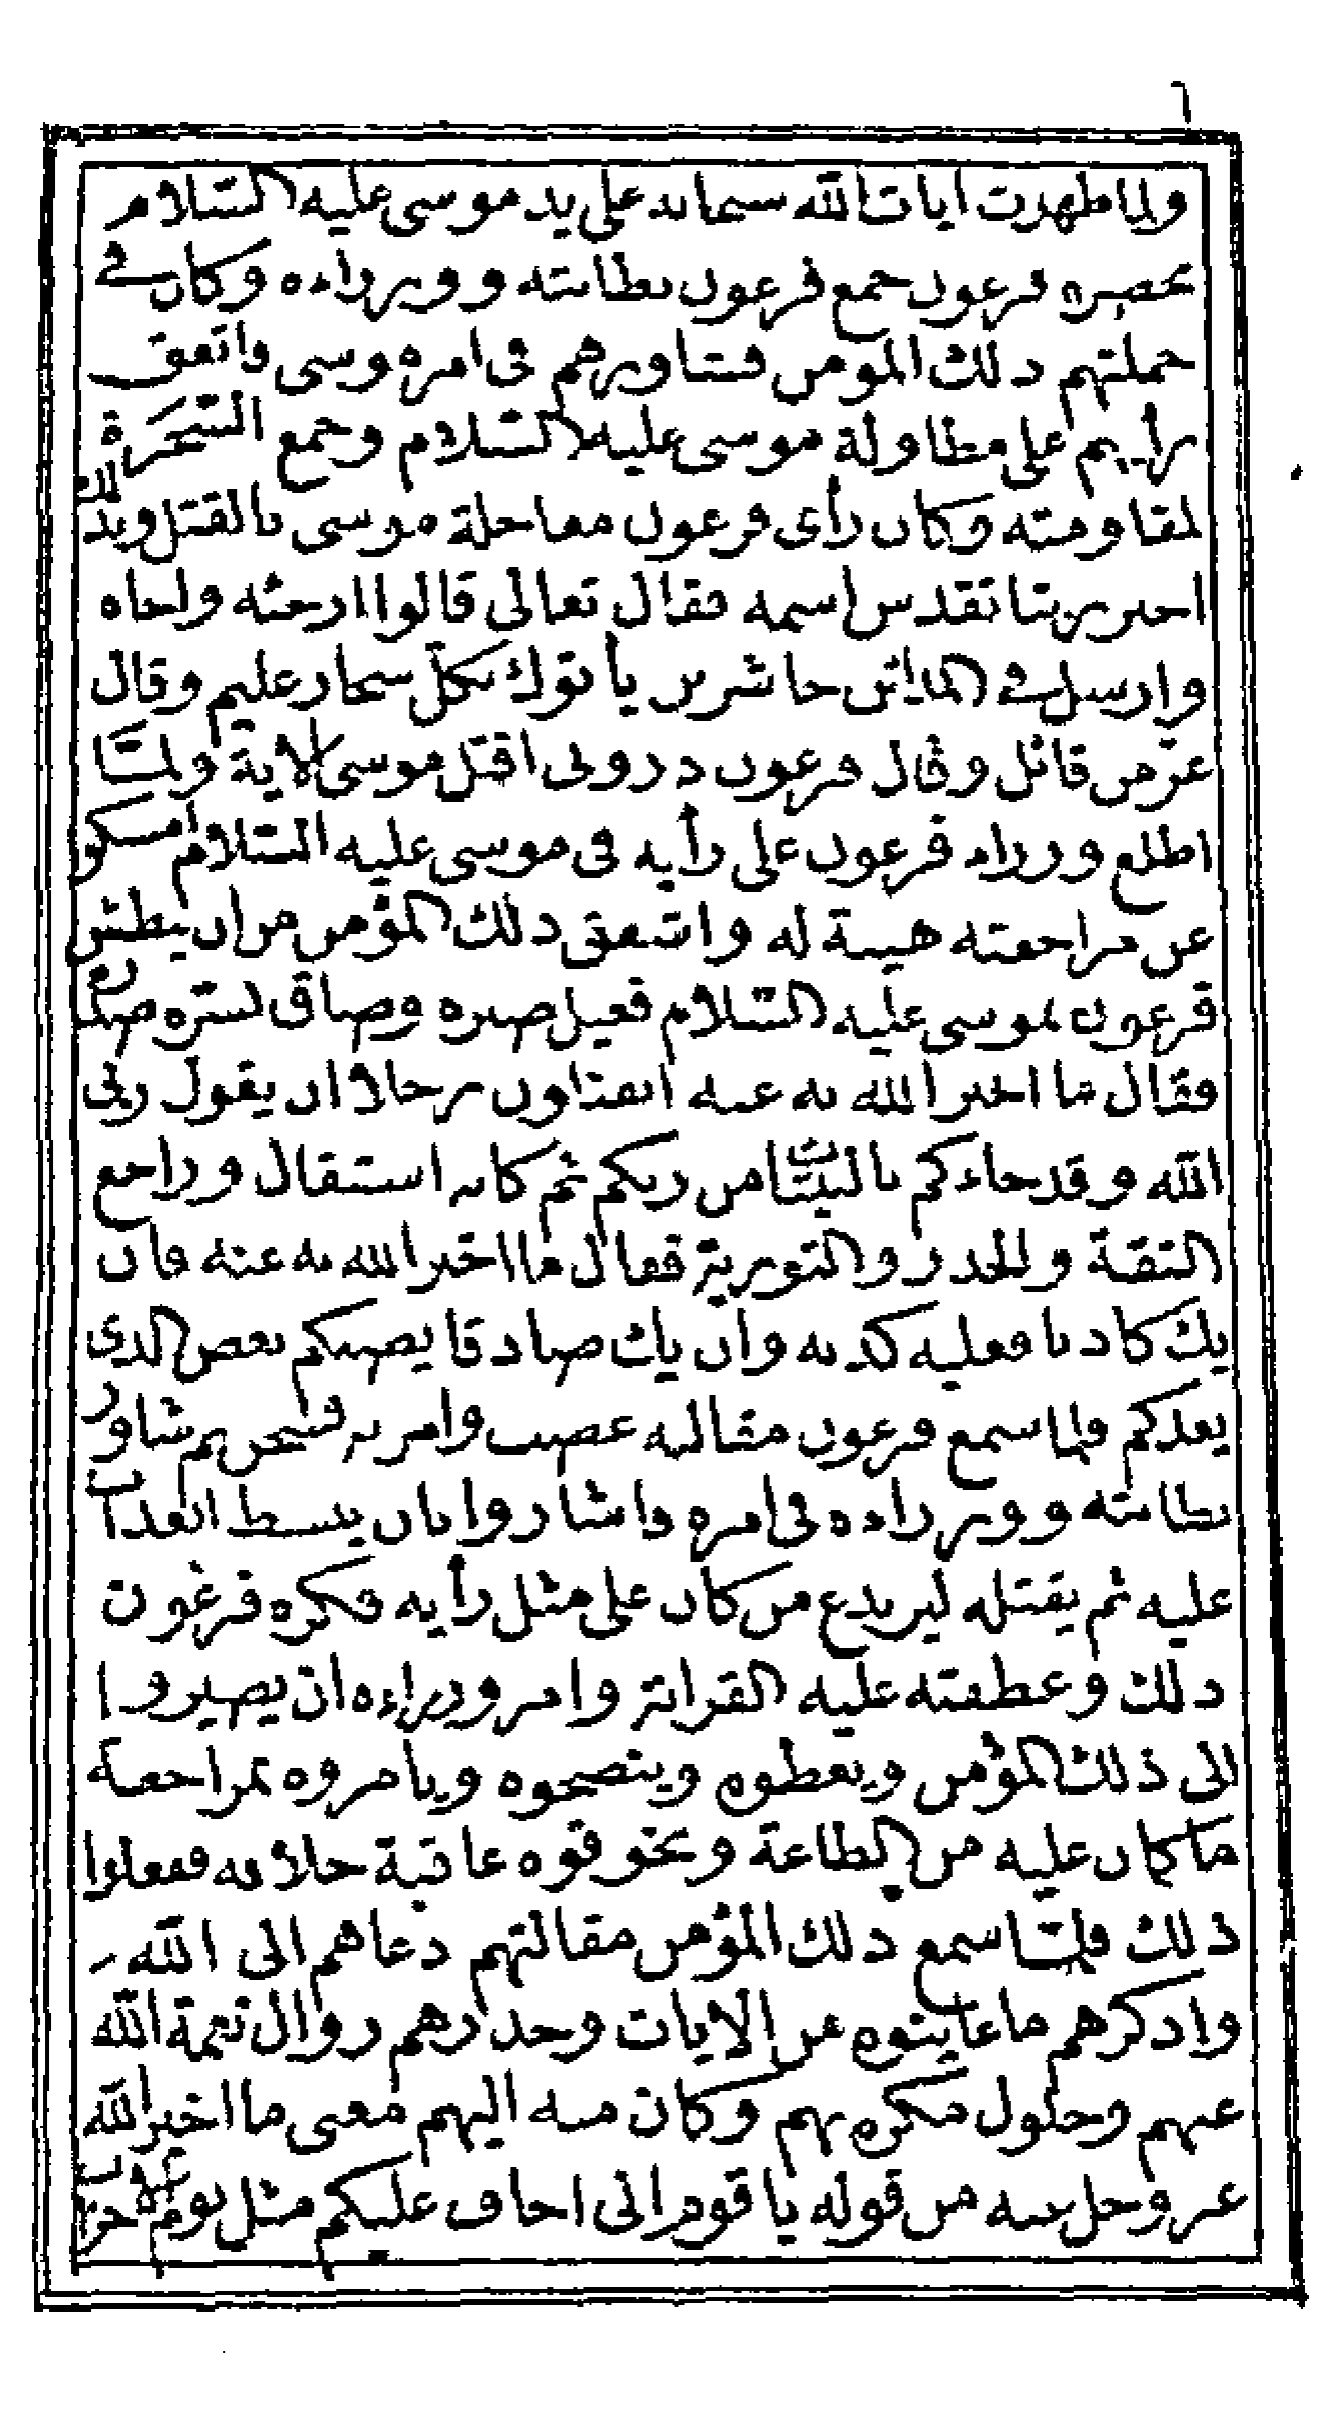 ٦
ولما ظهرت ايات الله سبحانه على يد موسى عليه السلام
بحضره فرعون جمع فرعون بطانته ووزراءه وكان في
جملتهم ذلك المؤمن فشاورهم في امر موسى واتفق
رأيهم على مطاولة موسى عليه السلام وجمع السحرة
لمقاومته وكان رأى فرعون معاجلة موسى بالقتل وبذلك
اخبر ربنا تقدس اسمه فقال تعالى قالوا ارجئه واخاه
وارسل في المدائن حاشرين يأتوك بكل سحار عليم وقال
عز من قائل وقال فرعون ذروني اقتل موسى الاية ولما
اطلع وزراء فرعون على رأيه في موسى عليه السلام امسكوا
عن مراجعته هيبة له واشفق ذلك المؤمن من ان يبطش
فرعون بموسى عليه السلام فعيل صبره وضاق بسره صدره
فقال ما اخبر الله به عنه اتقتلون رجلا ان يقول ربي
الله وقد جاءكم بالبينات من ربكم ثم كانه استقال وراجع
التقة والحذر والتورية فقال ما اخبر الله به عنه فان
يك كاذبا فعليه كذبه وان يك صادقا يصبكم بعض الذي
يعدكم فلما سمع فرعون مقالته غضب وامر به فسجن ثم شاور
بطانته ووزراءه في امره واشاروا بان يبسط العذاب
عليه ثم يقتله ليرتدع من كان على مثل رأيه فكره فرعون
ذلك وعطفته عليه القرابة وامر وزراءه ان يصيروا
الى ذلك المؤمن ويعظوه وينصحوه ويامروه بمراجعة
ما كان عليه من الطاعة ويخوفوه عاقبة خلافه ففعلوا
ذلك فلما سمع ذلك المؤمن مقالتهم دعاهم الى الله
واذكرهم ما عاينوه من الايات وحذرهم زوال نعمة الله
عنهم وحلول مكره بهم وكان منه اليهم معنى ما اخبر الله
عز وجل نبيه من قوله يا قوم اني اخاف عليكم مثل يوم الاحزاب